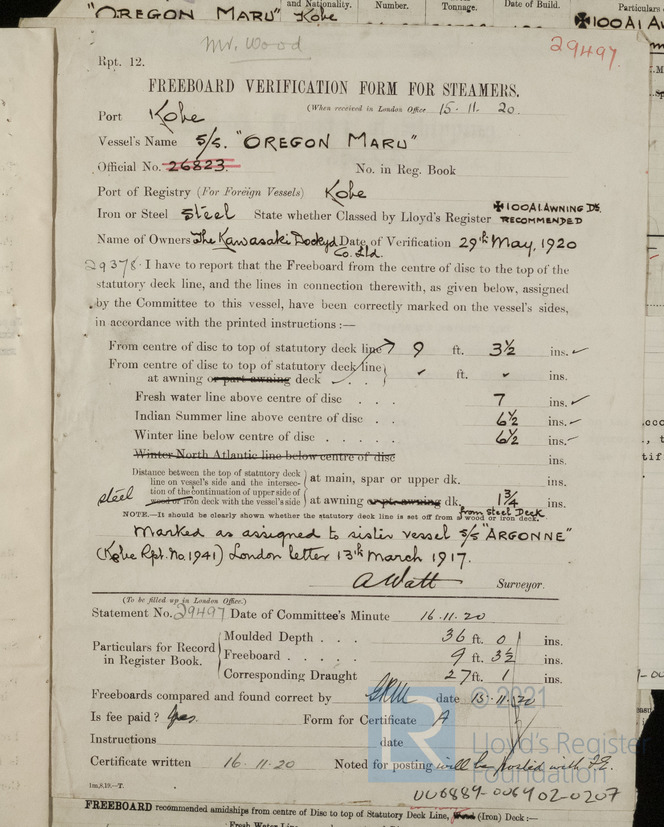 "OREGON MARU" Kobe
and Nationality. Number. Tonnage. Date of Build. Particulars
✠100A1 Aw
Mr. Wood
29497.
Rpt. 12.
FREEBOARD VERIFICATION FORM FOR STEAMERS.
(When received in London Office 15.11.20.
Port Kobe
Vessel's Name S/S. "OREGON MARU"
Official No. 26823. No. in Reg. Book
Port of Registry (For Foreign Vessels) Kobe
Iron or Steel Steel State whether Classed by Lloyd's Register ✠100A1.AWNING DK. RECOMMENDED
Name of Owners The Kawasaki Dockyd Co. Ltd. Date of Verification 29th May, 1920
29378. I have to report that the Freeboard from the centre of disc to the top of the
statutory deck line, and the lines in connection therewith, as given below, assigned
by the Committee to this vessel, have been correctly marked on the vessel's sides,
in accordance with the printed instructions :—
From centre of disc to top of statutory deck line 9 ft. 3½ ins.
From centre of disc to top of statutory deck line
at awning or part awning deck . . ft. ins.
Fresh water line above centre of disc . . . 7 ins.
Indian Summer line above centre of disc . . 6½ ins.
Winter line below centre of disc . . . . . 6½ ins.
Winter North Atlantic line below centre of disc ins.
Distance between the top of statutory deck
line on vessel's side and the intersec- at main, spar or upper dk. ins.
tion of the continuation of upper side of
steel wood or iron deck with the vessel's side at awning or pt. awning dk. 1¾ ins.
from Steel Deck
NOTE.—It should be clearly shown whether the statutory deck line is set off from a wood or iron deck.
Marked as assigned to sister vessel S/S "ARGONNE"
(Kobe Rpt. No. 1941) London letter 13th March 1917.
A Watt Surveyor.
(To be filled up in London Office.)
Statement No. 29497 Date of Committee's Minute 16.11.20
Particulars for Record in Register Book.
Moulded Depth . . . 36 ft. 0 ins.
Freeboard . . . . . 9 ft. 3½ ins.
Corresponding Draught 27 ft. 1 ins.
Freeboards compared and found correct by date 15.11.20
Is fee paid? Yes. Form for Certificate A
Instructions date
Certificate written 16.11.20 Noted for posting will be posted with
1m,8,19.—T.
© 2021
Lloyd's Register
Foundation
UU6889-006902-0207
FREEBOARD recommended amidships from centre of Disc to top of Statutory Deck Line, Wood (Iron) Deck :—
Fresh Water Line